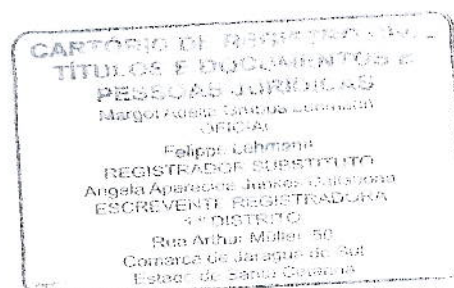 CARTÓRIO DE REGISTRO CIVIL
TÍTULOS E DOCUMENTOS E
PESSOAS JURÍDICAS
Margot Lehmann
OFICIAL
Felippe Lehmann
REGISTRADOR SUBSTITUTO
Angela Aparecida Junkes
ESCREVENTE REGISTRADORA
1º DISTRITO
Rua Arthur Müller, 50
Comarca de Jaraguá do Sul
Estado de Santa Catarina